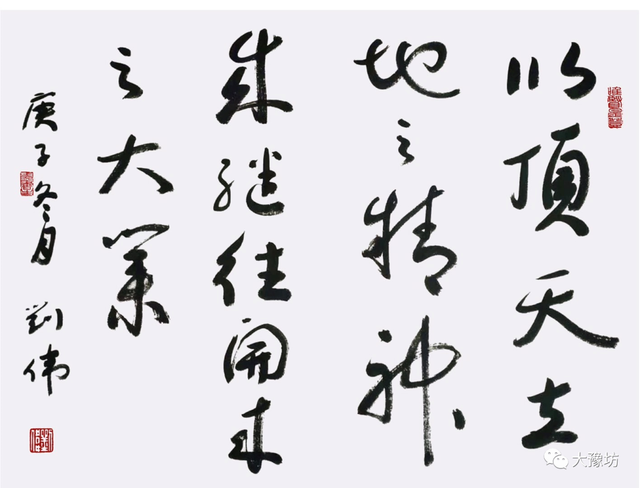 以頂天立
地之精神
成继往開来
之大業
庚子冬月 劉伟
大豫坊